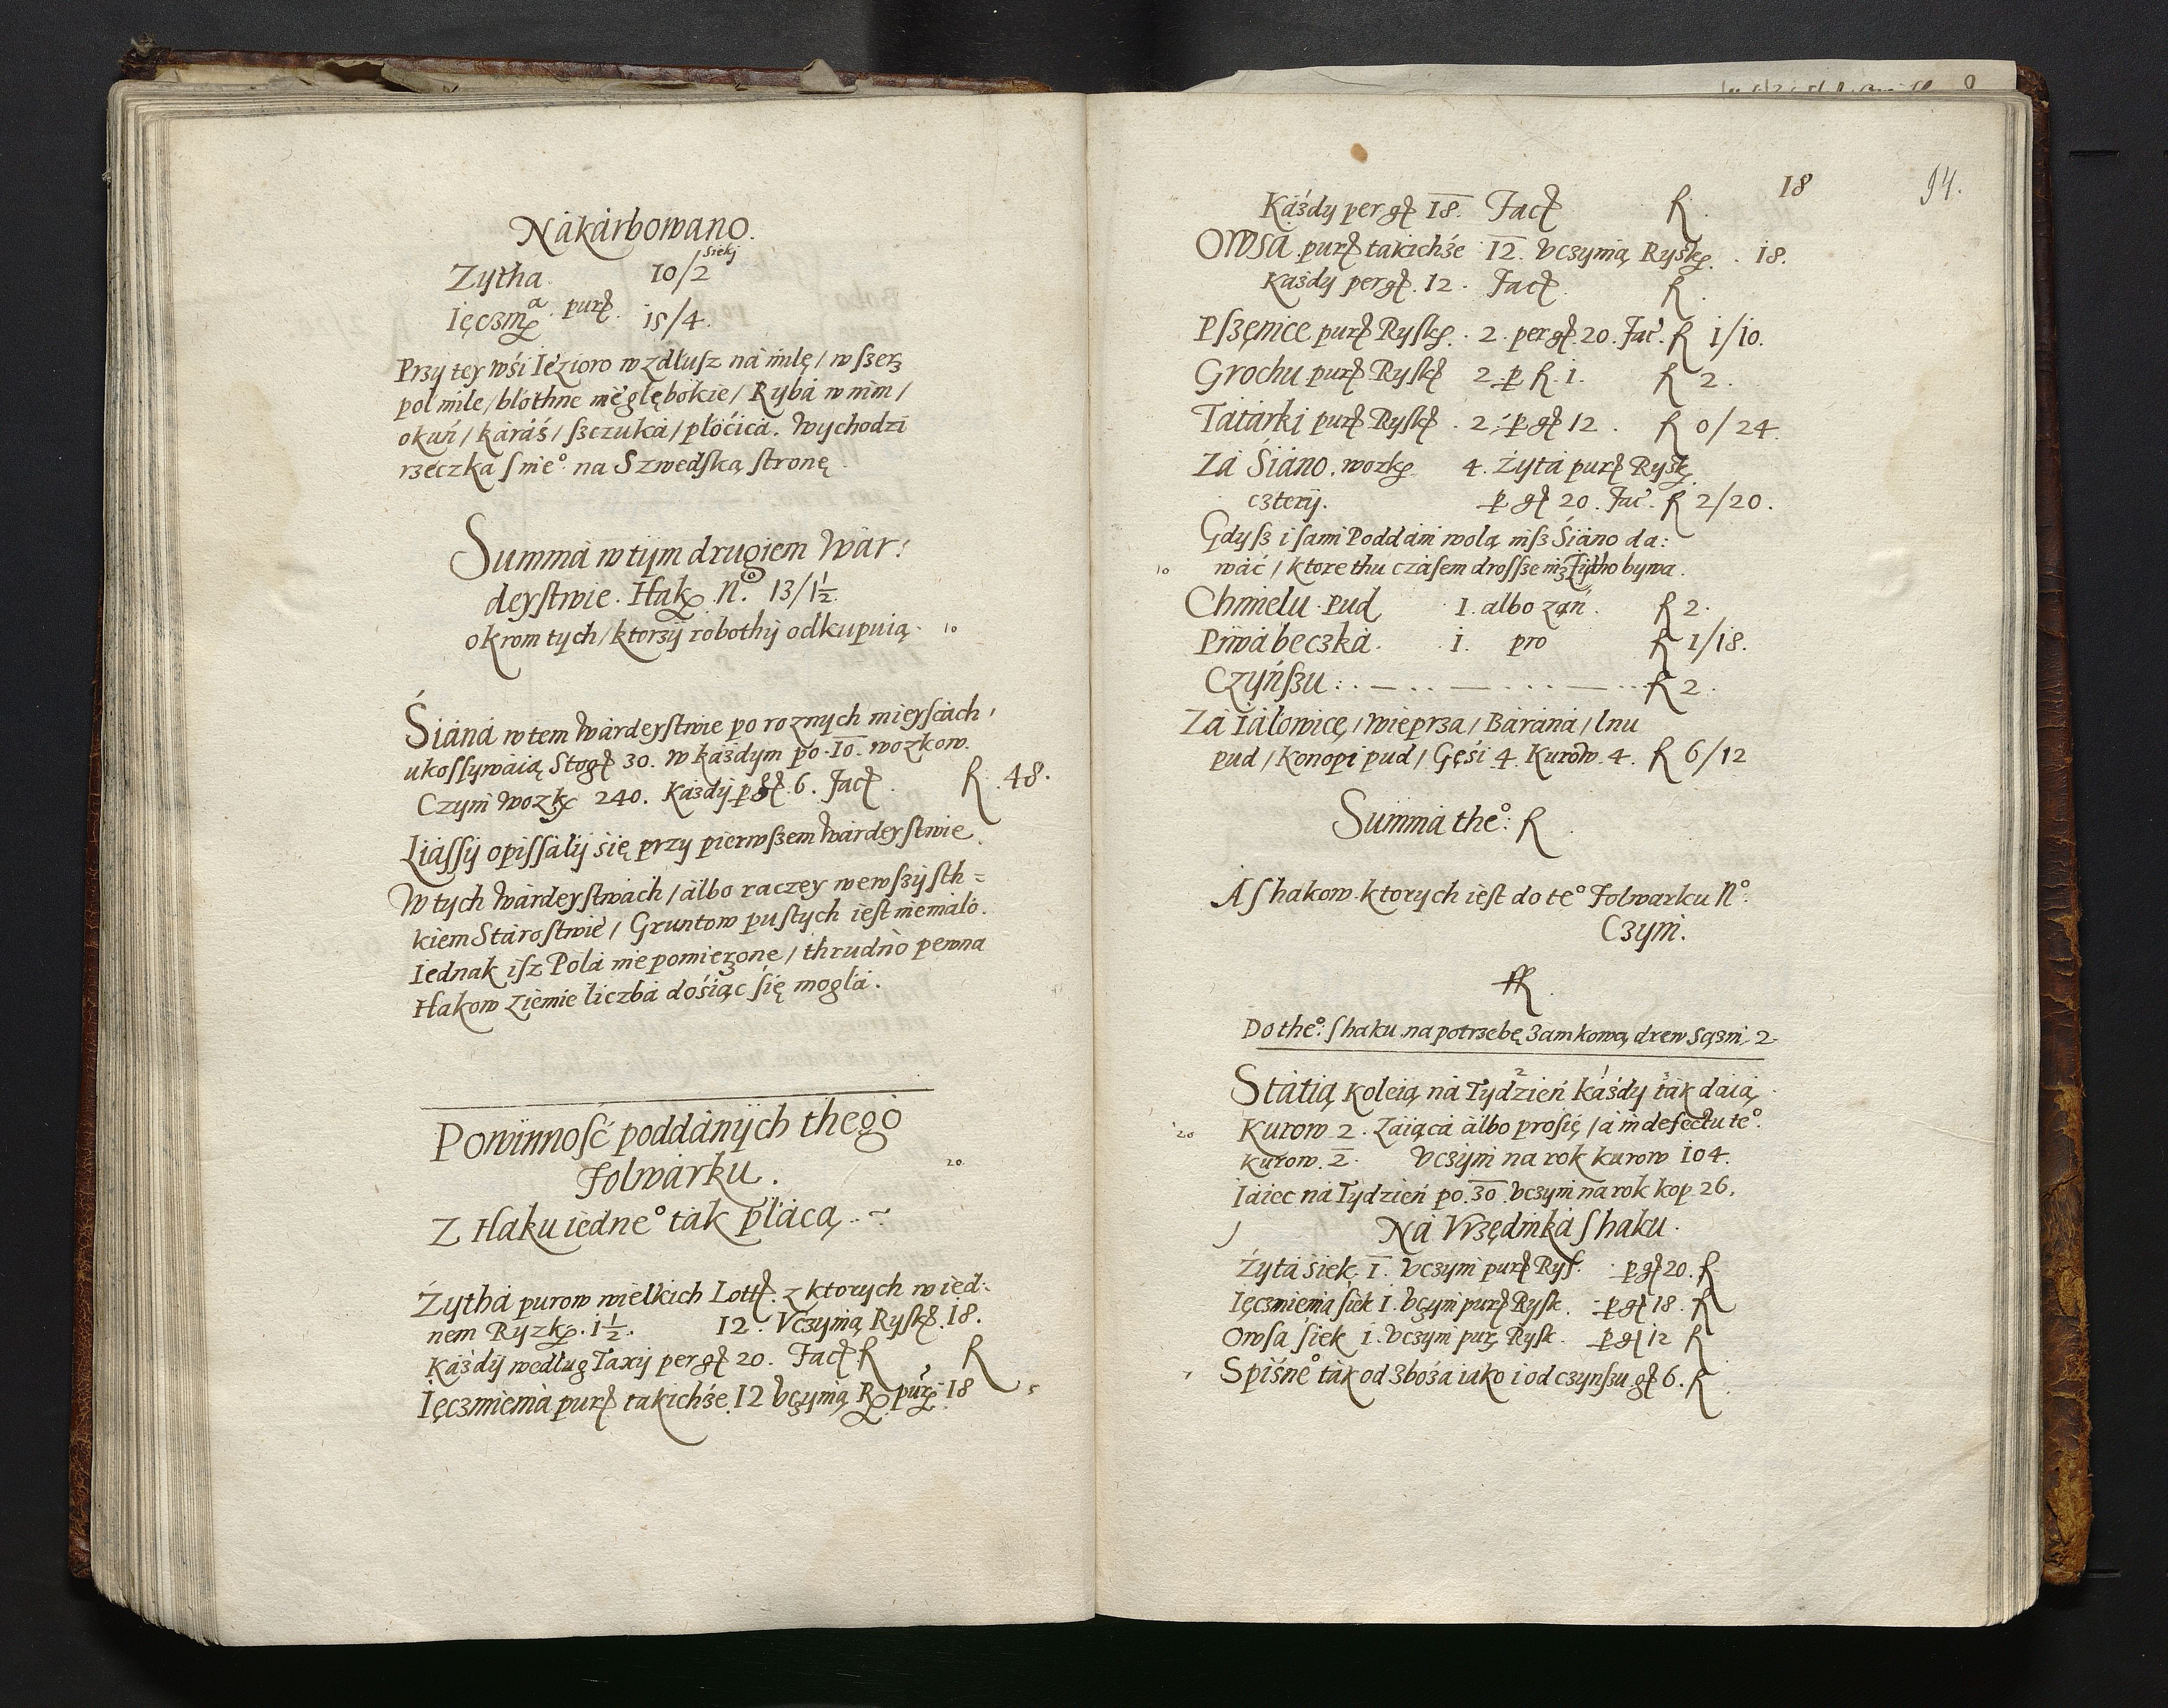 Nakarbowano.
Zytha. 10/2 siekj
Ięczm̨ᵃ. purꝭ. 15/4.
Przy tey wśi Iezioro wzdłusz na milę / wszerz
pol mile / błothne nie głębokie / Ryba w nim /
okuń / karaś / szczuka / płoćica. Wychodzi
rzeczka s nieº. na Szwedską stronę
Summa w tym drugiem War:
deystwie. Hak. Nº. 13/1½.
okrom tych / ktorzy robothy odkupuią. 10
Śiana w tem Wardeystwie po roznych mieyscach,
ukossywaią Stogꝭ 30. w każdym po .10. wozkow.
Czyni wozk 240. Każdy p gꝭ 6. facꝭ. R. 48.
Liassy opissaly się przy pierwszem Wardeystwie.
W tych Wardeystwach / albo raczey wewszysth=
kiem Starostwie / Gruntow pustych iest niemało.
Iednak isz Pola nie pomierzone / thrudno pewna
Hakow Ziemie liczba dośiąc się mogla.
Powinność poddanych thego
Folwarku. 20
Z Haku iedneº tak płacą.
Żytha purow wielkich Lottꝭ. z ktorych w ied:
nem Ryzk. 1½. 12. Vczynią Ryskꝭ 18.
Każdy według Taxy per gꝭ 20. Facꝭ R R
Ięczmienia purꝭ takichże 12 Vczynią R pur 18 5
18
94.
Każdy per gꝭ 18. Facꝭ R.
Owsa purꝭ takichże 12. Vczynią Rysk. 18.
Każdy per gꝭ. 12. Facꝭ. R.
Pszenice purꝭ Rysk. 2. per gꝭ 20. Fac. R 1/10.
Grochu purꝭ Ryskꝭ 2 p R. 1. R 2.
Tatarki purꝭ Ryskꝭ. 2. p gꝭ 12. R 0/24.
Za Śiano. wozk 4. Żyta purꝭ Rysk
cztery. p gꝭ 20. Fac. R 2/20.
Gdysz i sami Poddani wolą nisz Śiano da:
10 wać / ktore thu czasem drossze niz Zytho bywa.
Chmielu Pud 1. albo zań. R 2.
Piwa beczka. 1. pro R 1/18.
Czyńszu: R 2.
Za Iałowicę / Wieprza / Barana / lnu
pud / Konopi pud / Gęśi 4. Kurow. 4. R 6/12
Summa theº: R
A s hakow ktorych iest do teº Folwarku Nº.
Czyni.
R.
Do theº: s haku na potrzebę Zamkową drew Sążni. 2.
Statią koleią na Tydzień każdy tak daią.
20 Kurow 2. Zaiąca albo prosię / a in defectu teº.
Kurow. 2. Vczyni na rok kurow 104.
Iaiec na Tydzień po. 30. Vczyni na rok kop 26.
Na Vrzędnika s haku.
Żyta siek. 1. Vczyni purꝭ Rys. p gꝭ 20. R
Ięczmienia siek 1. Vczyni purꝭ Rysk. p gꝭ 18. R
Owsa siek 1. Vczyni pur Rysk. p gꝭ 12 R
Spiśneº tak od Zboża iako i od czynszu gꝭ 6. R.